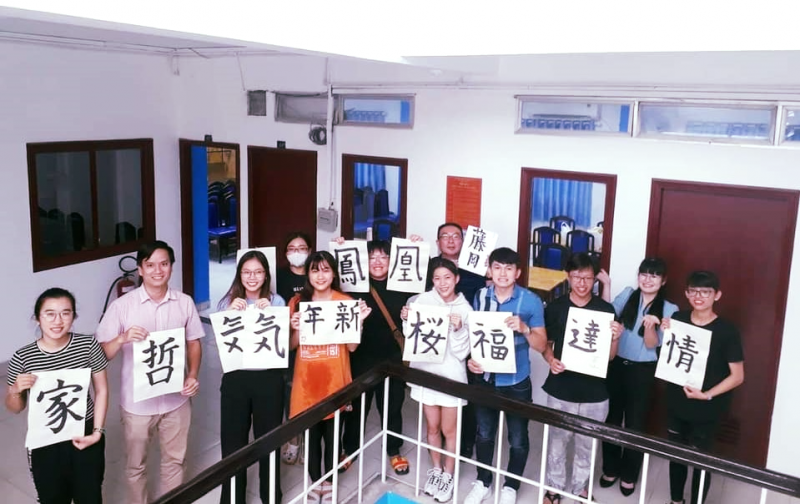 家
哲
気
年新
鳳
凰
藤
桜
福
達
情